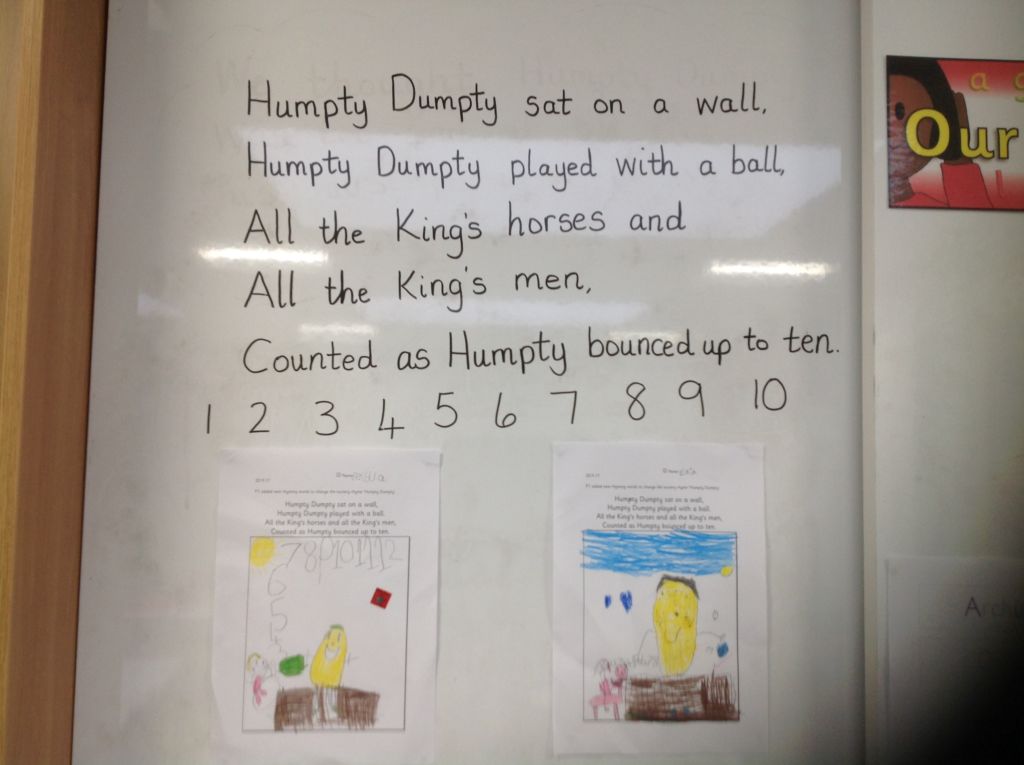 Humpty Dumpty sat on a wall,
Humpty Dumpty played with a ball,
All the King's horses and
All the King's men,
Counted as Humpty bounced up to ten.
1 2 3 4 5 6 7 8 9 10
Humpty Dumpty sat on a wall,
Humpty Dumpty played with a ball.
All the King's horses and all the King's men,
Counted as Humpty bounced up to ten.
7 8 9 10 11 12
6
5
Humpty Dumpty sat on a wall,
Humpty Dumpty played with a ball.
All the King's horses and all the King's men,
Counted as Humpty bounced up to ten.
a
Our